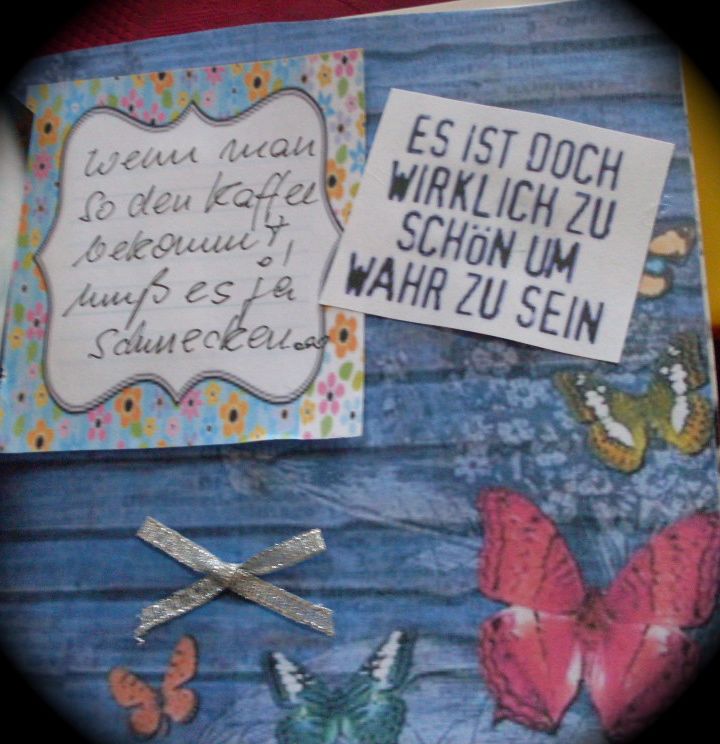 wenn man
so den Kaffee
bekommt,
muß es ja
schmecken...
ES IST DOCH
WIRKLICH ZU
SCHÖN UM
WAHR ZU SEIN